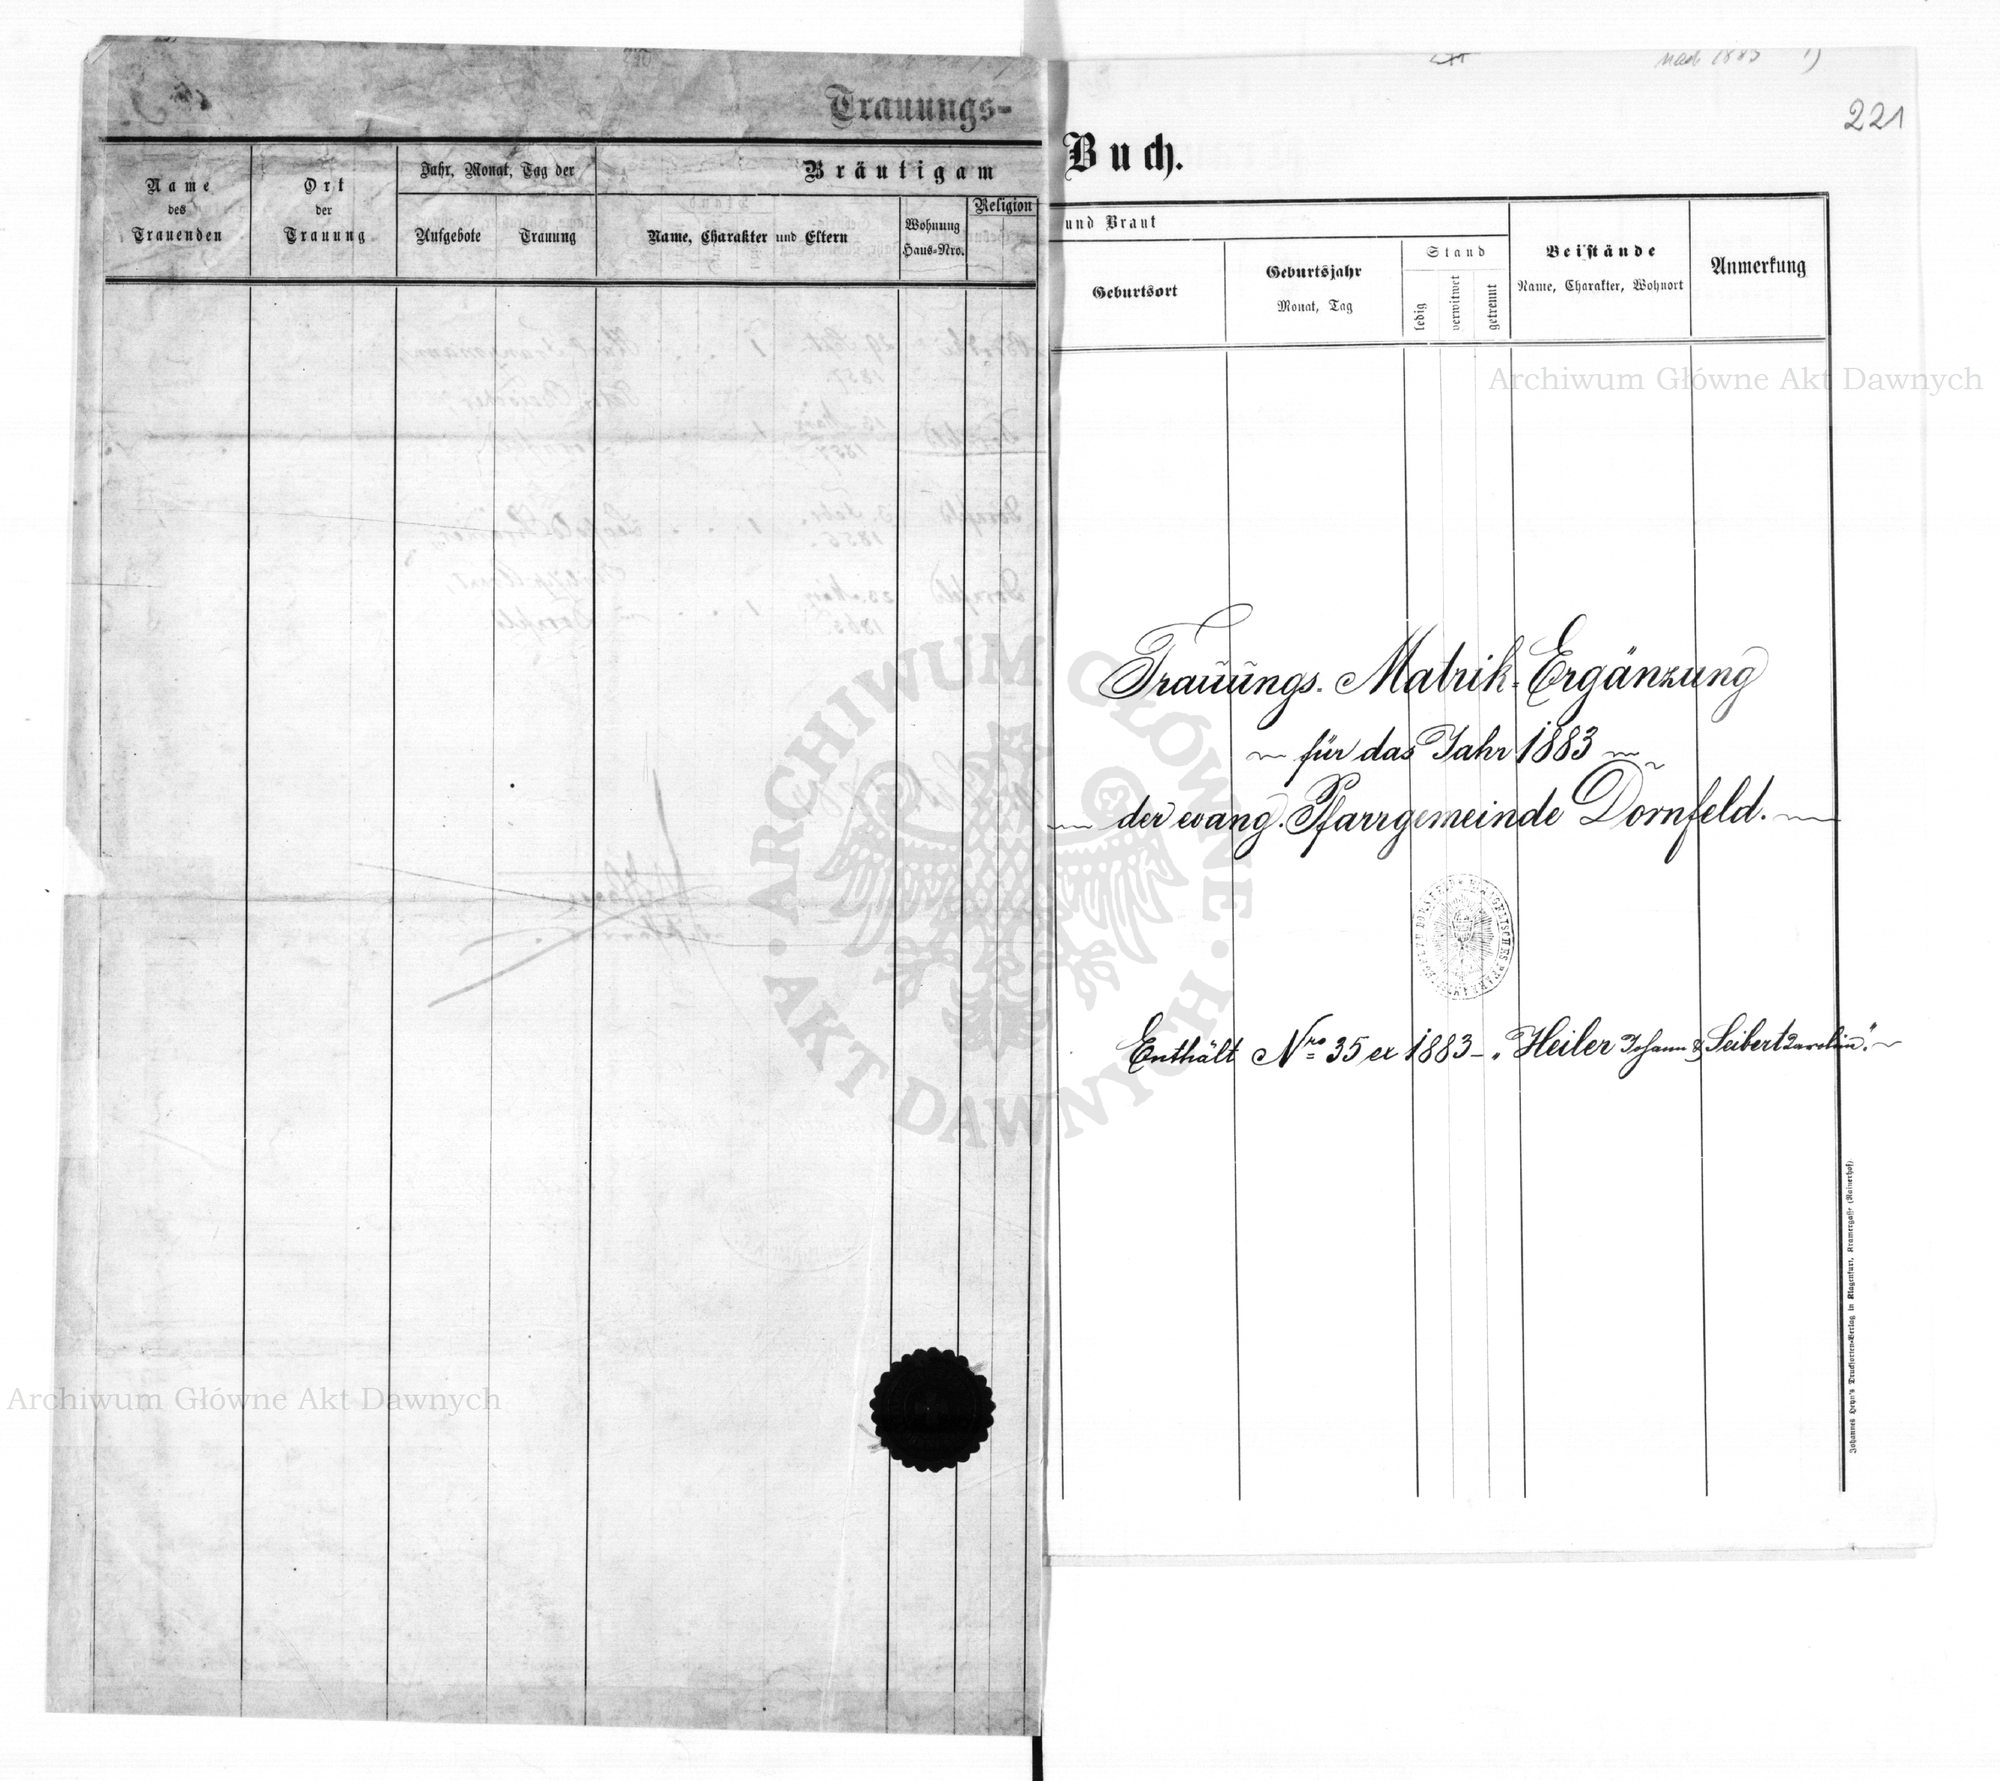 Trauungs-
Name
des
Trauenden
Ort
der
Trauung
Jahr, Monat, Tag der
Aufgebote
Trauung
Bräutigam
Name, Charakter und Eltern
Wohnung
Haus-Nro.
Religion
nach 1883 1)
221
Buch.
und Braut
Geburtsort
Geburtsjahr
Monat, Tag
Stand
ledig
verwitwet
getrennt
Beistände
Name, Charakter, Wohnort
Anmerkung
Archiwum Główne Akt Dawnych
Trauungs-Matrik-Ergänzung
für das Jahr 1883
der evang. Pfarrgemeinde Dornfeld.
ARCHIWUM GŁÓWNE · AKT DAWNYCH ·
Enthält Nro 35 ex 1883 – „Heiler Johann & Seibert Karolin“.
Johannes Heyn's Drucksorten-Verlag in Klagenfurt, Kramergasse (Rainerhof)
Archiwum Główne Akt Dawnych